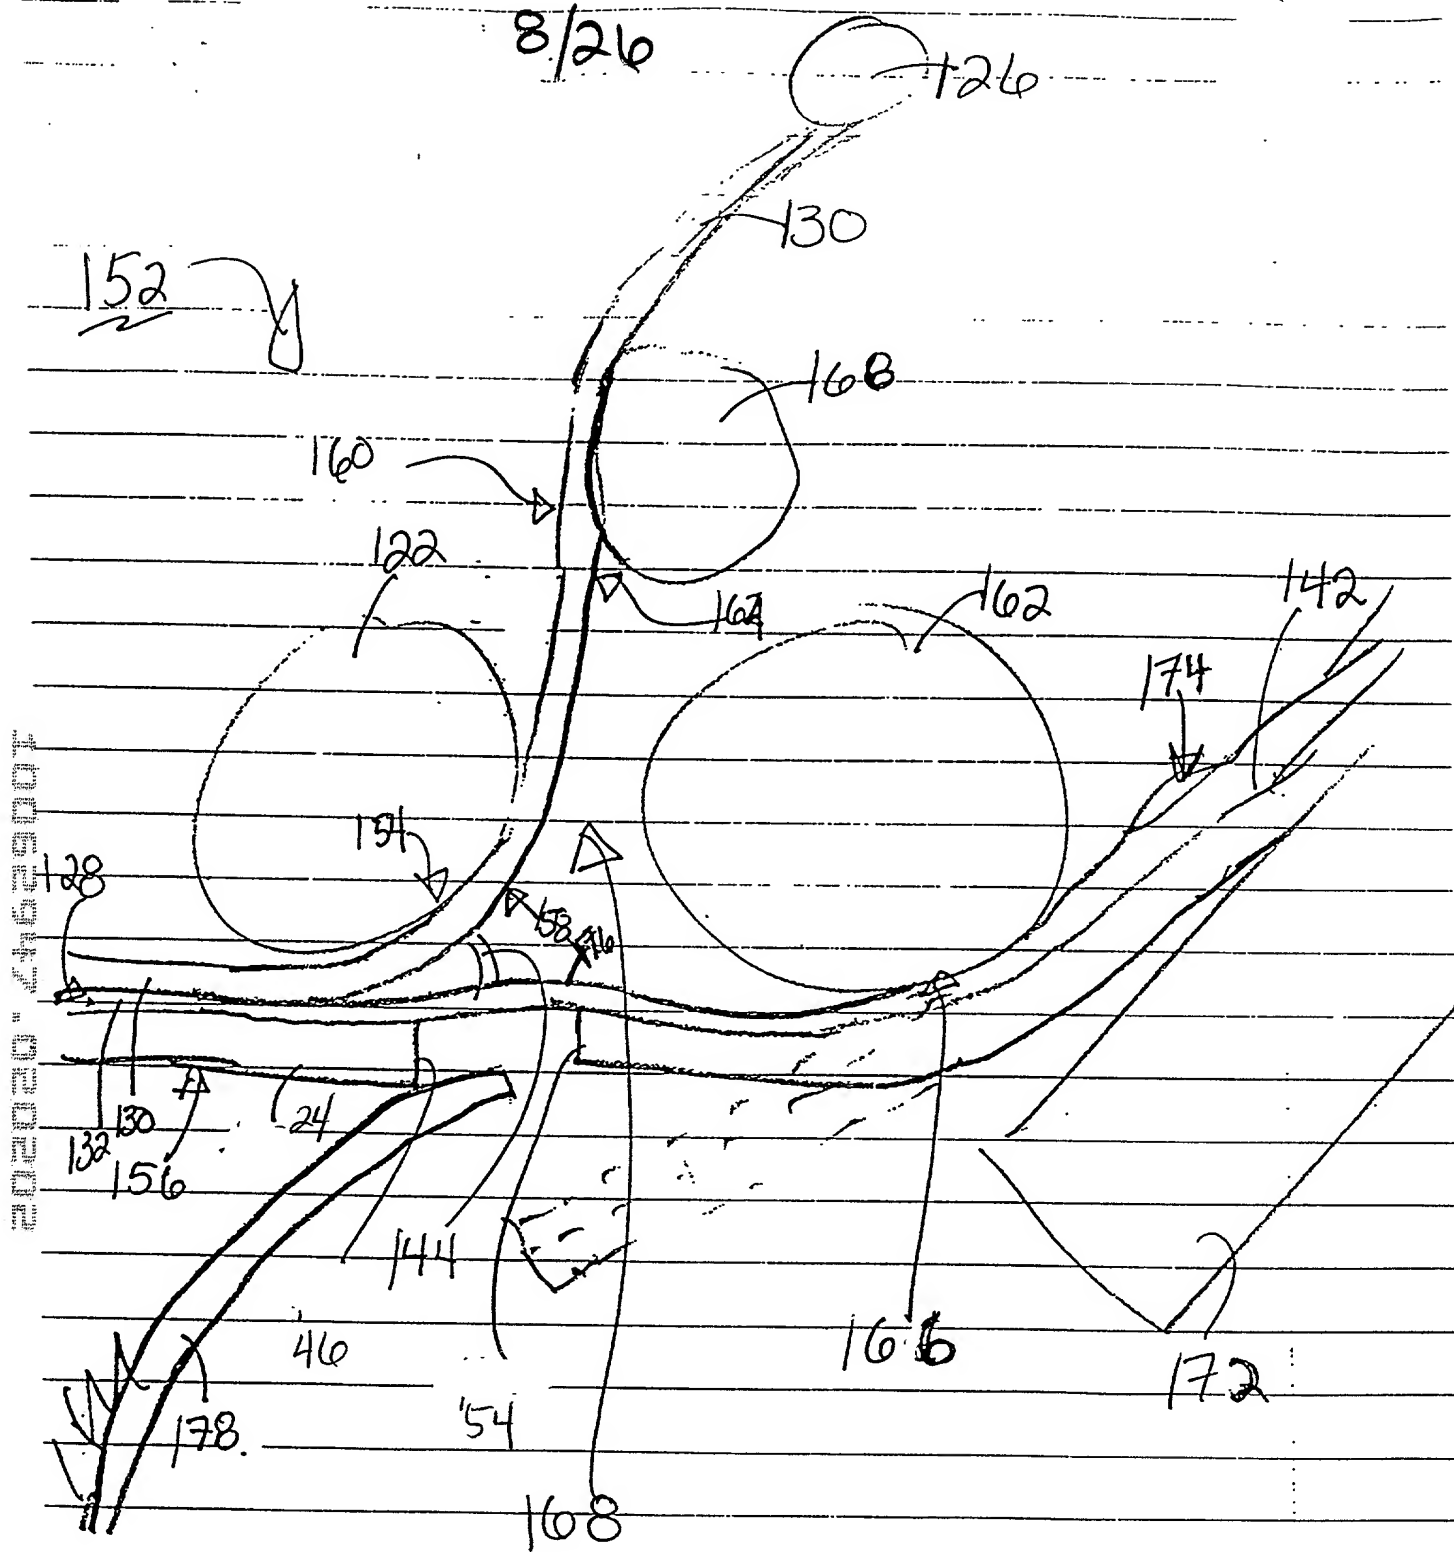 8/26
126
130
152
168
160
122
162
164
142
174
154
128
158
176
130
132
24
156
144
46
166
172
54
178.
168